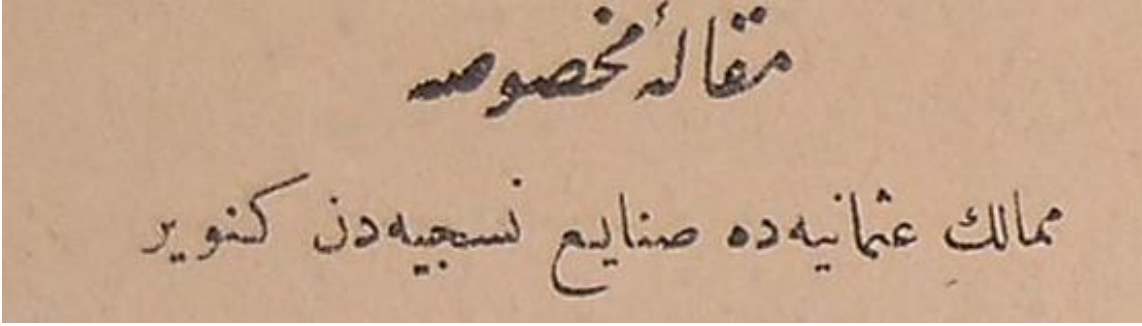 مقالهٔ مخصوصه
ممالك عثمانیه‌ده صنایع نسجیه‌دن كنویر